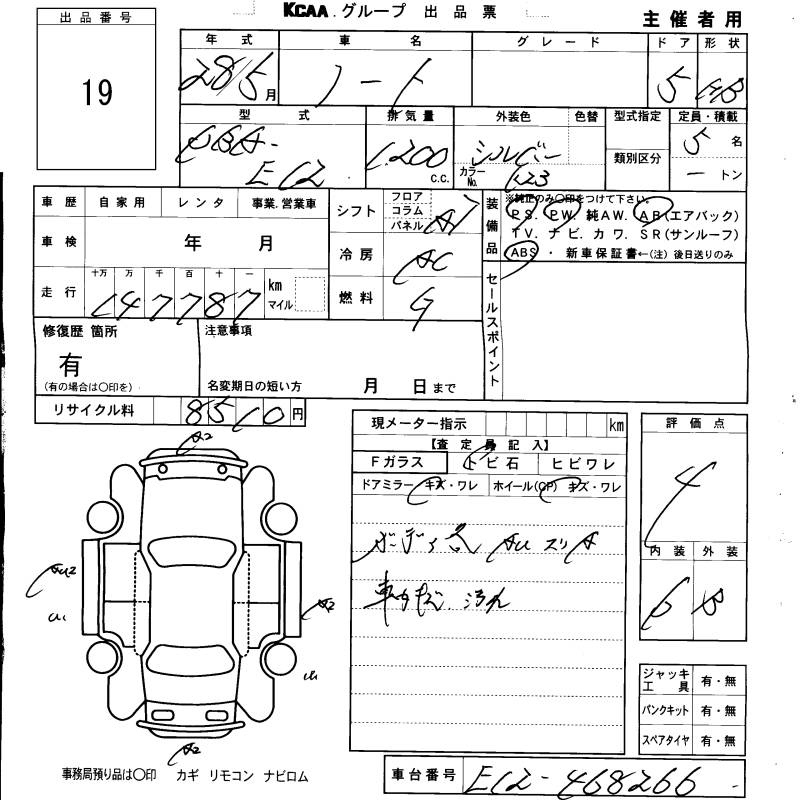 KCAA.グループ 出品票
主催者用
出品番号
19
年式 車名 グレード ドア 形状
28/5月 ノート 5 HB
型式 排気量 外装色 色替 型式指定 定員・積載
DBA-E12 1,200 c.c. シルバー カラーNo. K23 類別区分 5名
ートン
車歴 自家用 レンタ 事業.営業車
車検 年 月
走行 十万 万 千 百 十 一 147787 km マイル
シフト フロア コラム パネル AT
冷房 AC
燃料 G
装備品
※純正のみ〇印をつけて下さい。
PS. PW. 純AW. AB(エアバック)
TV. ナビ. カワ. SR(サンルーフ)
ABS ・ 新車保証書←(注)後日送りのみ
セールスポイント
修復歴 箇所
有
(有の場合は〇印を)
注意事項
名変期日の短い方 月 日まで
リサイクル料 8510円
現メーター指示 km
【査定員記入】
Fガラス トビ石 ヒビワレ
ドアミラー キズ・ワレ ホイール(CP) キズ・ワレ
AU スリA
汚れ
評価点
4
内装 外装
B
A2
AU2
U1
A2
U1
A2
ジャッキ工具 有・無
パンクキット 有・無
スペアタイヤ 有・無
事務局預り品は〇印 カギ リモコン ナビロム
車台番号 E12-468266